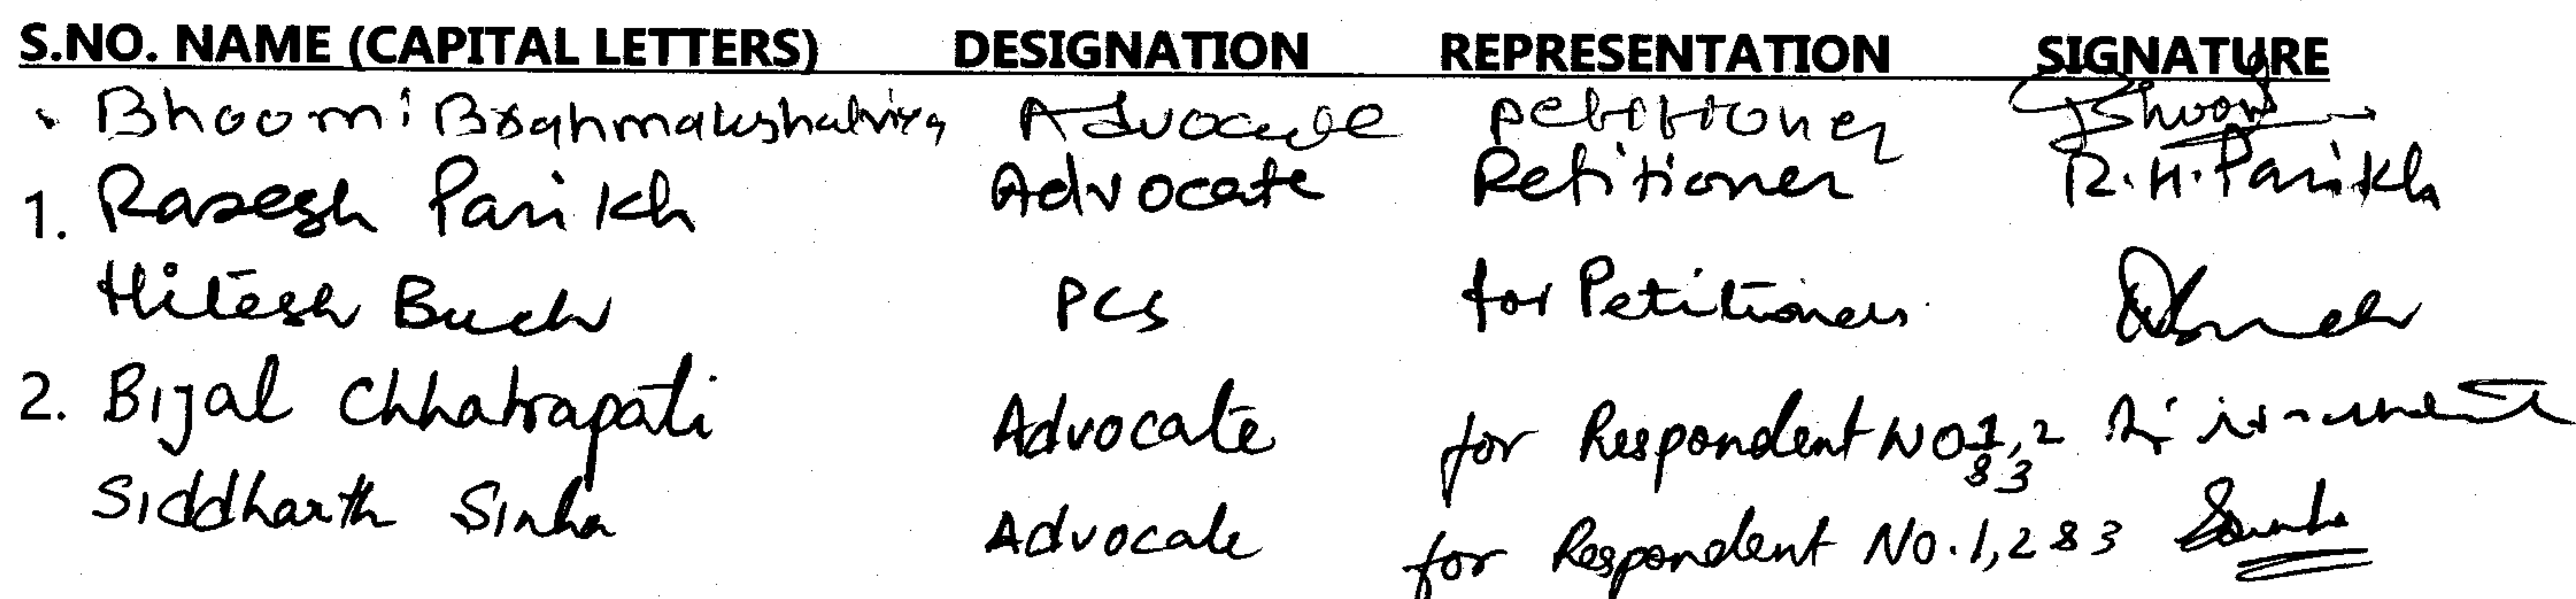 S.NO. NAME (CAPITAL LETTERS) DESIGNATION REPRESENTATION SIGNATURE
Bhoomi Brahmakshatriya Advocate petitioner Bhoomi
1. Rasesh Parikh Advocate Petitioner R.H. Parikh
Hitesh Buch PCS for Petitioners
2. Bijal Chhatrapati Advocate for Respondent NO 1, 2 & 3
Siddharth Sinha Advocate for Respondent No. 1, 2 & 3